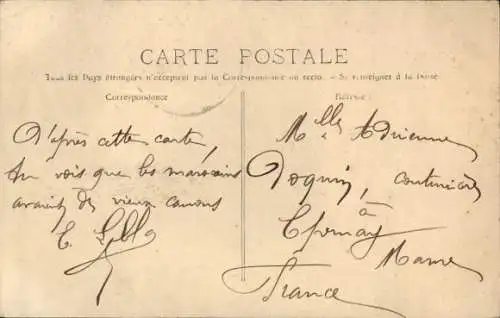 CARTE POSTALE
Tous les Pays étrangers n'acceptent pas la Correspondance au recto. - Se renseigner à la Poste
Correspondance
D'après cette carte,
tu vois que les marocains
avaient de vieux canons
Adresse :
Mlle Adrienne
couturière
à
Epernay
Marne
France